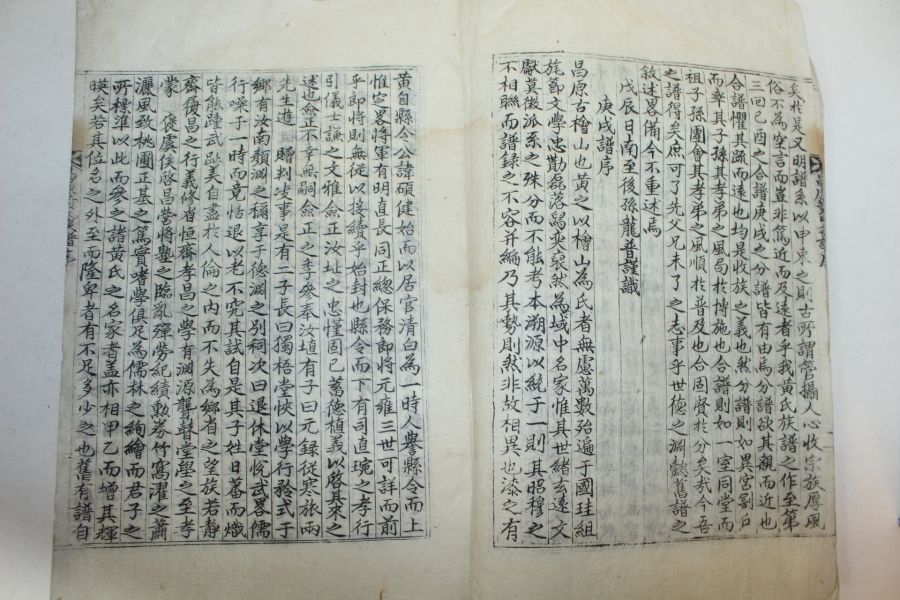 矣於是又明譜系以申束之則古所謂管攝人心收宗族厚風
俗不為空言而豈非篤近而及遠者乎我黃氏族譜之作至第
三回己酉之合譜庚戌之分譜皆有由焉分譜欲其親而近也
合譜懼其疏而遠也均是收族之義也然分譜則如異宮割戶
而率其子孫其孝弟之風局於博施也合譜則如一室同堂而
祖子孫團會其孝弟之風順於普及也合固賢於分矣我今吾
之譜得矣庶可了先父兄未了之志事乎世德之淵懿舊譜之
敘述畧備今不重述焉
戊辰日南至後孫龍普謹識
庚戌譜序
昌原古檜山也黃之以檜山為氏者無慮萬數殆遍于國珪組
旄節文學忠勳磊落舄奕裒然為域中名家惟其世緒玄遠文
獻莫徵派系之殊分而不能考本溯源以統于一則其昭穆之
不相聯而譜錄之不容并編乃其勢則然非故相異也漆之有
黃自縣令公諱碩健始而以居官清白為一時人譽縣令而上
惟定畧將軍有明直長同正總保務郎將元雍三世可詳而前
乎即將則無從以接續乎始封也縣令而下有司直琬之孝行
引儀士謙之文雅僉正汝址之忠懂固已蓄德植義以啓其來之
述也僉正不幸無嗣僉正之季參奉汝埴有子曰元録從寒旅兩
先生遊 贈判决事是有二子長曰獨梧堂悏以學行矜式于
鄉有汝南顙淵之稱享于德淵之別祠次曰退休堂悅武畧儒
行噪于一時而竟恬退以老不究其試自是其子姓日蕃而熾
皆能踵武趾美自盡於人倫之內而不失為鄉省之望族若靜
齋復昌之行義修省恒齋孝昌之學有淵源聾聲堂壆之至孝
蒙 褒盧侯啓昌掌將墍之臨亂殫勞紀績勳券竹窩濯之蕭
灑風致桃圃正基之篤實嗜學俱足為儒林之絢繪而君子之
所標準以此而參之諸黃氏之名家者盖亦相甲乙而增其輝
暎矣若其位名之外至而隆卑者有不足多少之也舊有譜自